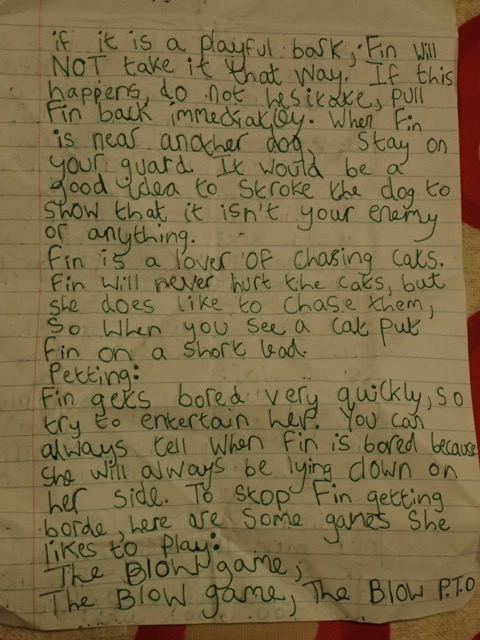 if it is a playful bark, Fin will
NOT take it that way. If this
happens, do not hesitate, pull
Fin back immediatley. When Fin
is near another dog, Stay on
your guard. It would be a
good idea to stroke the dog to
show that it isn't your enemy
or anything.
Fin is a lover of chasing cats.
Fin will never hurt the cats, but
she does like to chase them,
so when you see a cat put
Fin on a short lead.
Petting:
Fin gets bored very quickly, so
try to entertain her. You can
always tell when Fin is bored because
she will always be lying down on
her side. To stop Fin getting
borde, here are some games she
likes to play:
The Blow game,
The Blow game, The Blow P.T.O